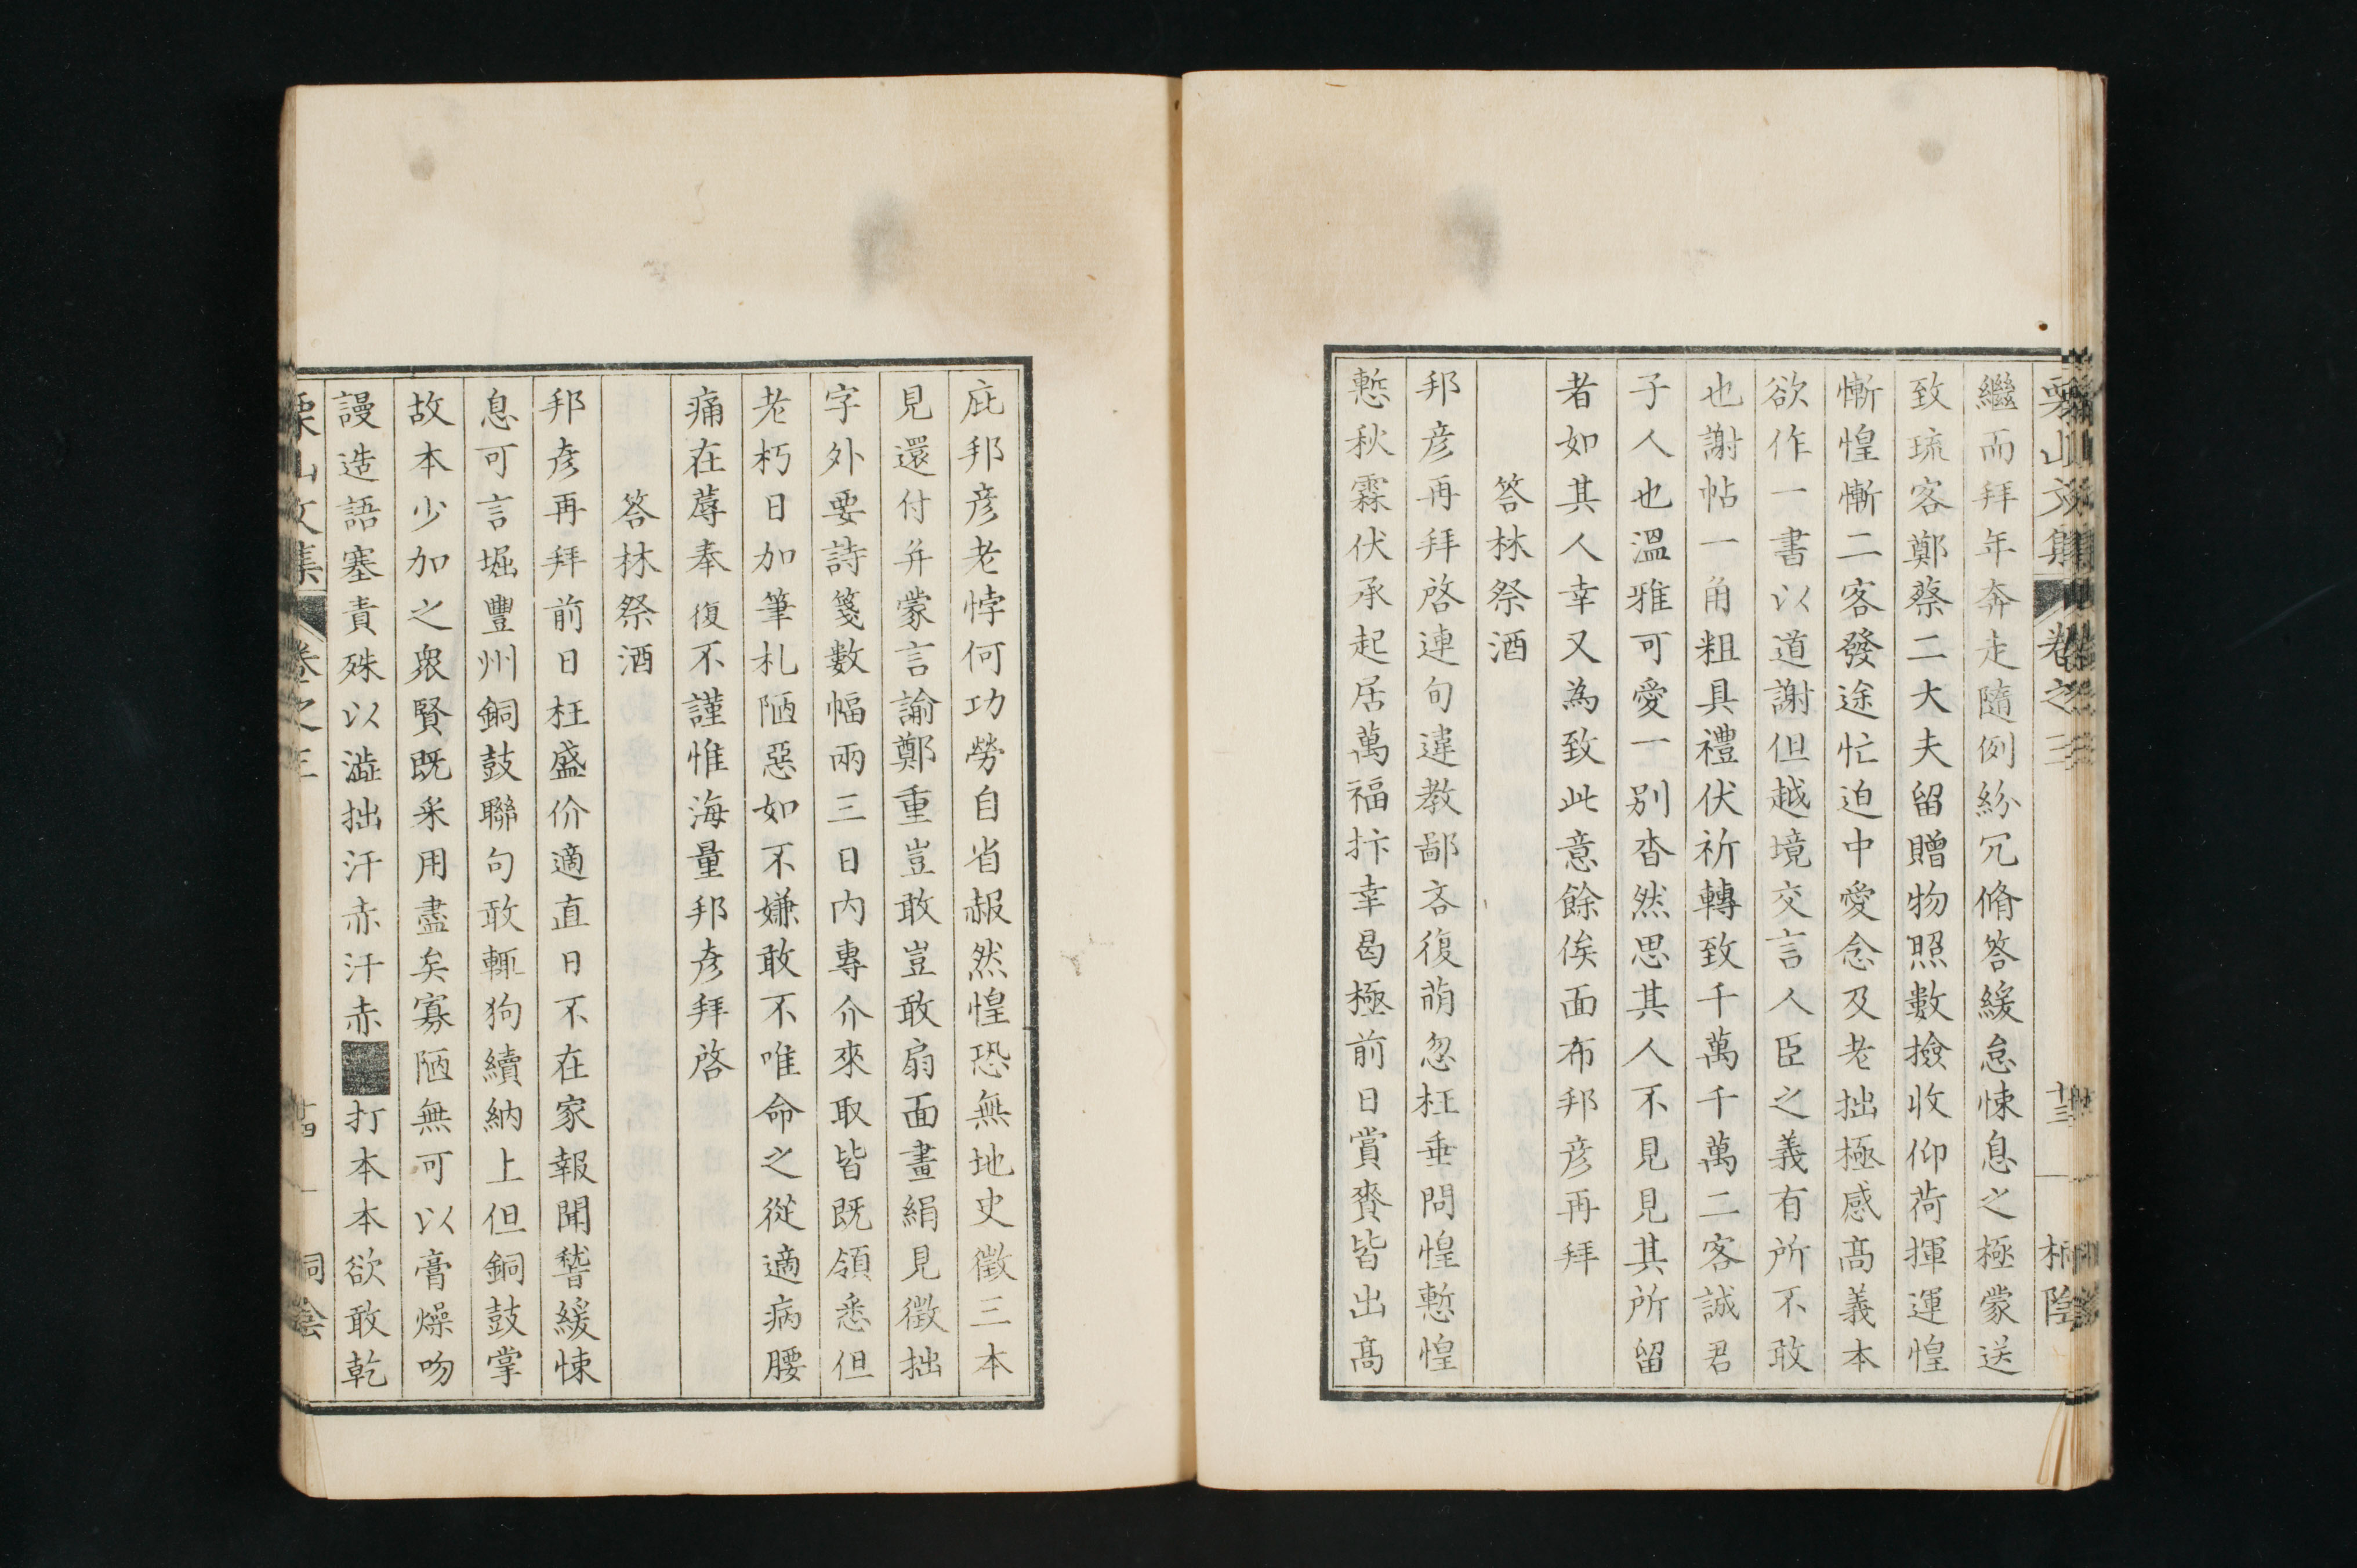 栗山文集 卷之三 十三 桐陰
繼而拜年奔走隨例紛冗脩答緩怠悚息之極蒙送
致琉客鄭蔡二大夫留贈物照數撿收仰荷揮運惶
慚惶慚二客發途忙迫中愛念及老拙極感高義本
欲作一書以道謝但越境交言人臣之義有所不敢
也謝帖一角粗具禮伏祈轉致千萬千萬二客誠君
子人也溫雅可愛一別杳然思其人不見見其所留
者如其人幸又為致此意餘俟面布邦彦再拜
答林祭酒
邦彦再拜啓連句違教鄙吝復萌忽枉垂問惶慙惶
慙秋霖伏承起居萬福抃幸曷極前日賞賚皆出高
庇邦彦老悖何功勞自省赧然惶恐無地史徵三本
見還付并蒙言諭鄭重豈敢豈敢扇面畫絹見徵拙
字外要詩箋數幅兩三日內專介來取皆既領悉但
老朽日加筆札陋惡如不嫌敢不唯命之從適病腰
痛在蓐奉復不謹惟海量邦彦拜啓
答林祭酒
邦彦再拜前日枉盛价適直日不在家報聞嵇緩悚
息可言堀豐州銅鼓聯句敢輒狗續納上但銅鼓掌
故本少加之衆賢既采用盡矣寡陋無可以膏燥吻
謾造語塞責殊以澁拙汗赤汗赤■打本本欲敢乾
栗山文集 卷之三 十四 桐陰